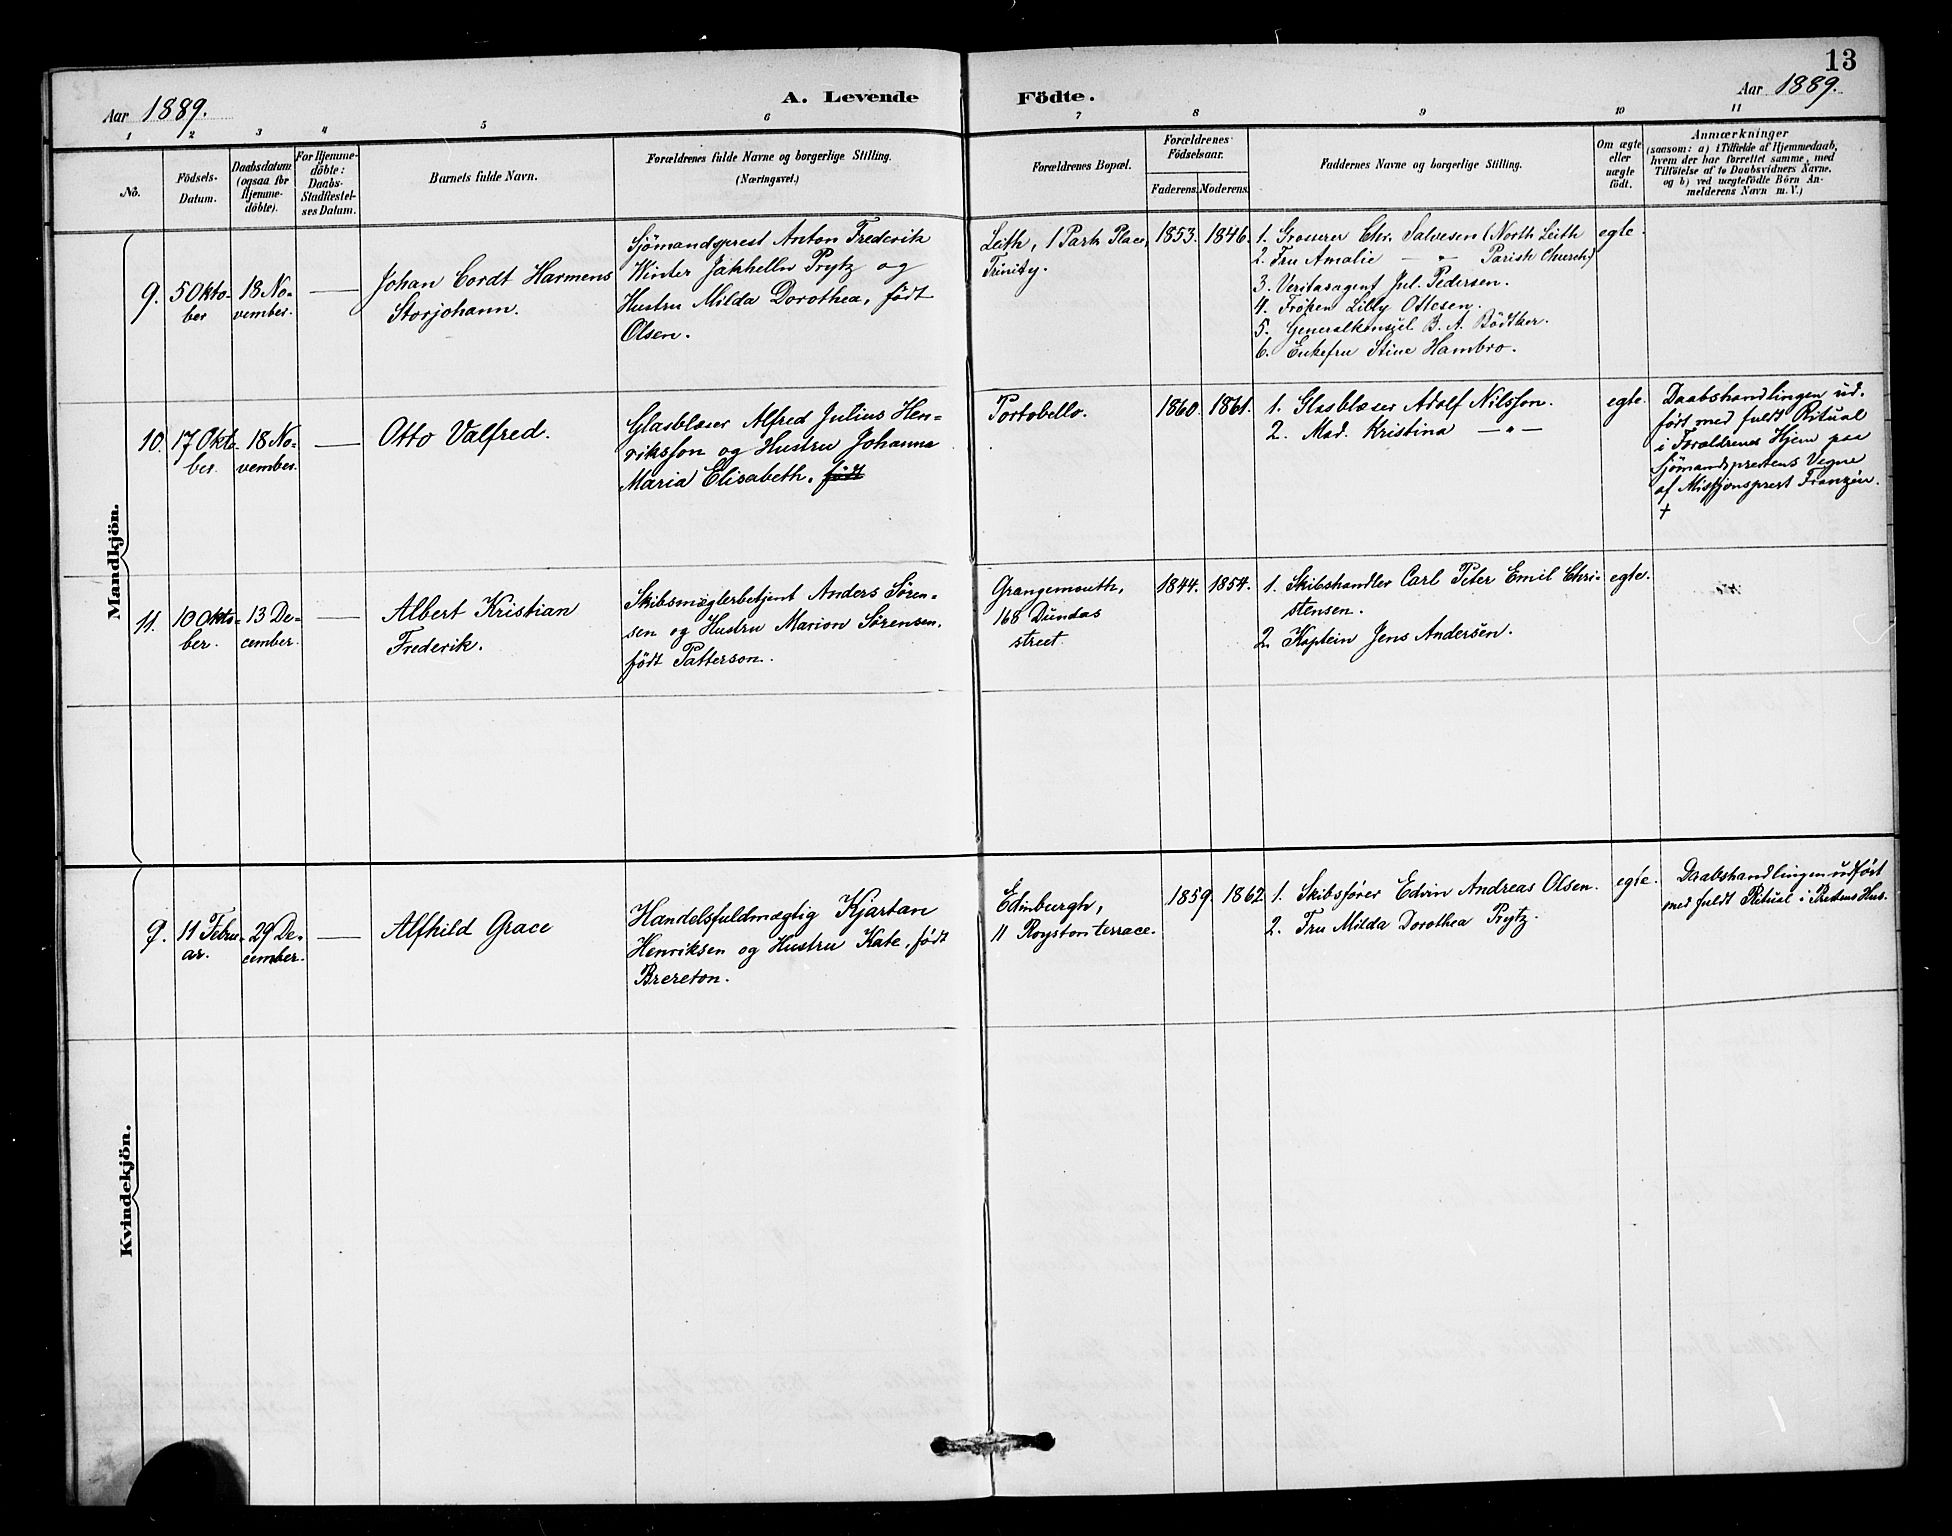 13
Aar 1889.
A. Levende Födte.
Aar 1889.
1 2 3 4 5 6 7 8 9 10 11
No.
Födsels-
Datum.
Daabsdatum
(ogsaa for
Hjemme-
döbte).
For Hjemme-
döbte:
Daabs-
Stadfæstel-
ses Datum.
Barnets fulde Navn.
Forældrenes fulde Navne og borgerlige Stilling.
(Næringsvei.)
Forældrenes Bopæl.
Forældrenes
Födselsaar.
Faderens. Moderens.
Faddernes Navne og borgerlige Stilling.
Om ægte
eller
uægte
födt.
Anmærkninger
(saasom: a) i Tilfælde af Hjemmedaab,
hvem der har forrettet samme, med
Tilföielse af to Daabsvidners Navne,
og b) ved uægtefödte Börn An-
melderens Navn m. V.)
Mandkjön.
9.
5 Okto-
ber
18 No-
vember.
Johan Cordt Harmens
Storjohann.
Sjömandsprest Anton Frederik
Winter Jakhelln Prytz og
Hustru Milda Dorothea, født
Olsen.
Leith, 1 Park Place,
Trinity.
1853. 1846.
1. Grosserer Chr. Salvesen (North Leith
2. Fru Amalie — " — Parish Church)
3. Veritasagent Jul. Pedersen.
4. Frøken Lilly Ottesen.
5. Generalkonsul B. A. Bödtker.
6. Enkefru Stine Hambro.
egte.
10.
17 Okto-
ber.
18 No-
vember.
Otto Valfred.
Glasblæser Alfred Julius Hen-
riksson og Hustru Johanna
Maria Elisabeth, født
Portobello.
1860. 1861.
1. Glasblæser Adolf Nilsson.
2. Mad. Kristina — " —
egte.
Daabshandlingen ud-
ført med fuldt Ritual
i Forældrenes Hjem paa
Sjömandsprestens Vegne
af Missionsprest Franzén.
+
11.
10 Okto-
ber.
13 De-
cember.
Albert Kristian
Frederik.
Skibsmæglerbetjent Anders Sören-
sen og Hustru Marion Sørensen,
født Patterson.
Grangemouth,
168 Dundas
street.
1844. 1854.
1. Skibshandler Carl Peter Emil Chri-
stensen.
2. Kaptein Jens Andersen.
egte.
Kvindekjön.
9.
11 Febru-
ar.
29 De-
cember.
Alfhild Grace
Handelsfuldmægtig Kjartan
Henriksen og Hustru Kate, født
Brereton.
Edinburgh,
11 Royston terrace.
1859. 1862
1. Skibsfører Edvin Andreas Olsen.
2. Fru Milda Dorothea Prytz.
egte.
Daabshandlingen udført
med fuldt Ritual i Prestens Hus.